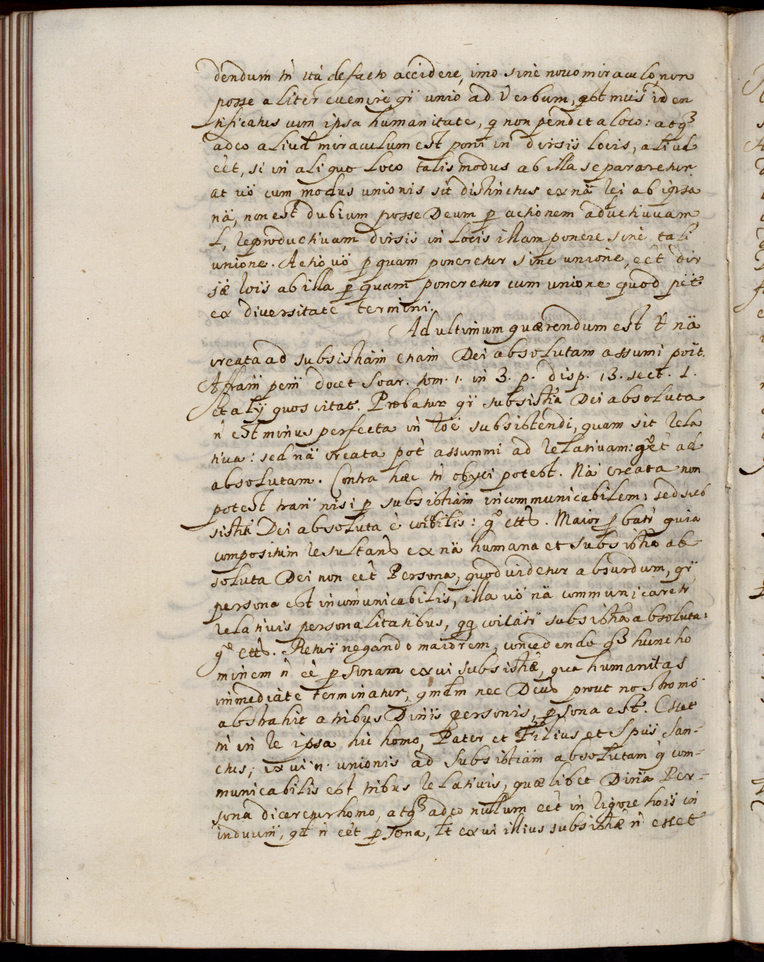 dendum tñ ita de facto accidere, imo sine novo miraculo non
posse aliter evenire qª unio ad Verbum, est modus iden
tificatus cum ipsa humanitate, q non pendet a loco: atqʒ
adeo aliud miraculum est poni in divsis locis, aliud
eet, si in aliquo loco talis modus ab illa separaretur.
at vº cum modus unionis sit distinctus ex nª rei ab ipsa
nª, non est dubium posse Deum p actionem aductivam
l, reproductivam divsis in locis illam ponere sine tali
unione. Actio vº p quam poneretur sine unione, eet div
sæ rõis ab illa p quam poneretur cum unione quod pet
ex diversitate termini.
Ad ultimum quærendum est ut nª
creata ad subsistiam etiam Dei absolutam assumi poit.
Affram pem docet Soar. tom. 1. in 3. p. disp. 13. sect. 1.
et alij quos citat. Probatur qª subsistia Dei absoluta
ñ est minus perfecta in rõe subsistendi, quam sit rela
tiva: sed nª creata pot assummi ad relativam: gº et ad
absolutam. Contra hæc tñ obijci potest. Nª creata non
potest trari nisi p subsistiam incommunicabilem: sed sub
sistia Dei absoluta ê coïbilis: gº ettª. Maior pbatr quia
compositum resultans ex nª humana et subsistia ab-
soluta Dei non eet Persona, quod videtur absurdum, qª
persona est incomunicabilis, illa vº nª communicaretr
relativis personalitatibus, qq coïcatr subsistia absoluta:
gº ettª. Retur negando maiorem, concedendo qʒ hunc ho
minem ñ eê psonam ex vi subsistiæ, qua humanitas
inmediate terminatur, qmdm nec Deus prout nostro mõ
abstrahit a tribus Divis personis, psona est. Esset
tñ in re ipsa hic homo, Pater et Filius et Spus San-
ctus, ex vi n. unionis ad subsistiam absolutam q com-
municabilis est tribus relativis, quælibet Divia Per-
sona diceretur homo, atqʒ adeo nullum eet in rigore hoïs in
induum, qd ñ eet psona, lt ex vi illius subsistiæ ñ esset